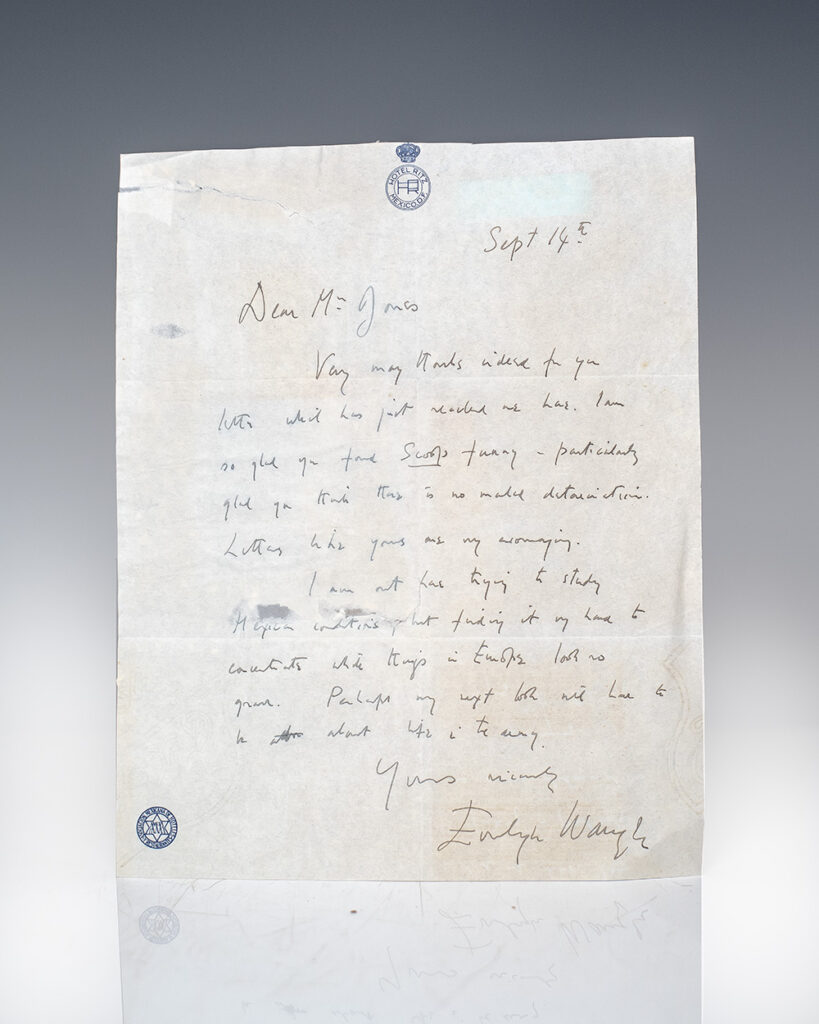 HOTEL RITZ
HR
MEXICO, D.F.
Sept 14th
Dear Mr Jones
Very many thanks indeed for your
letter which has just reached me here. I am
so glad you found Scoop funny - particularly
glad you think there is no marked deterioration.
Letters like yours are very encouraging.
I am out here trying to study
Mexican conditions but finding it very hard to
concentrate while things in Europe look so
grave. Perhaps my next book will have to
be about life in the army.
Yours sincerely
Evelyn Waugh